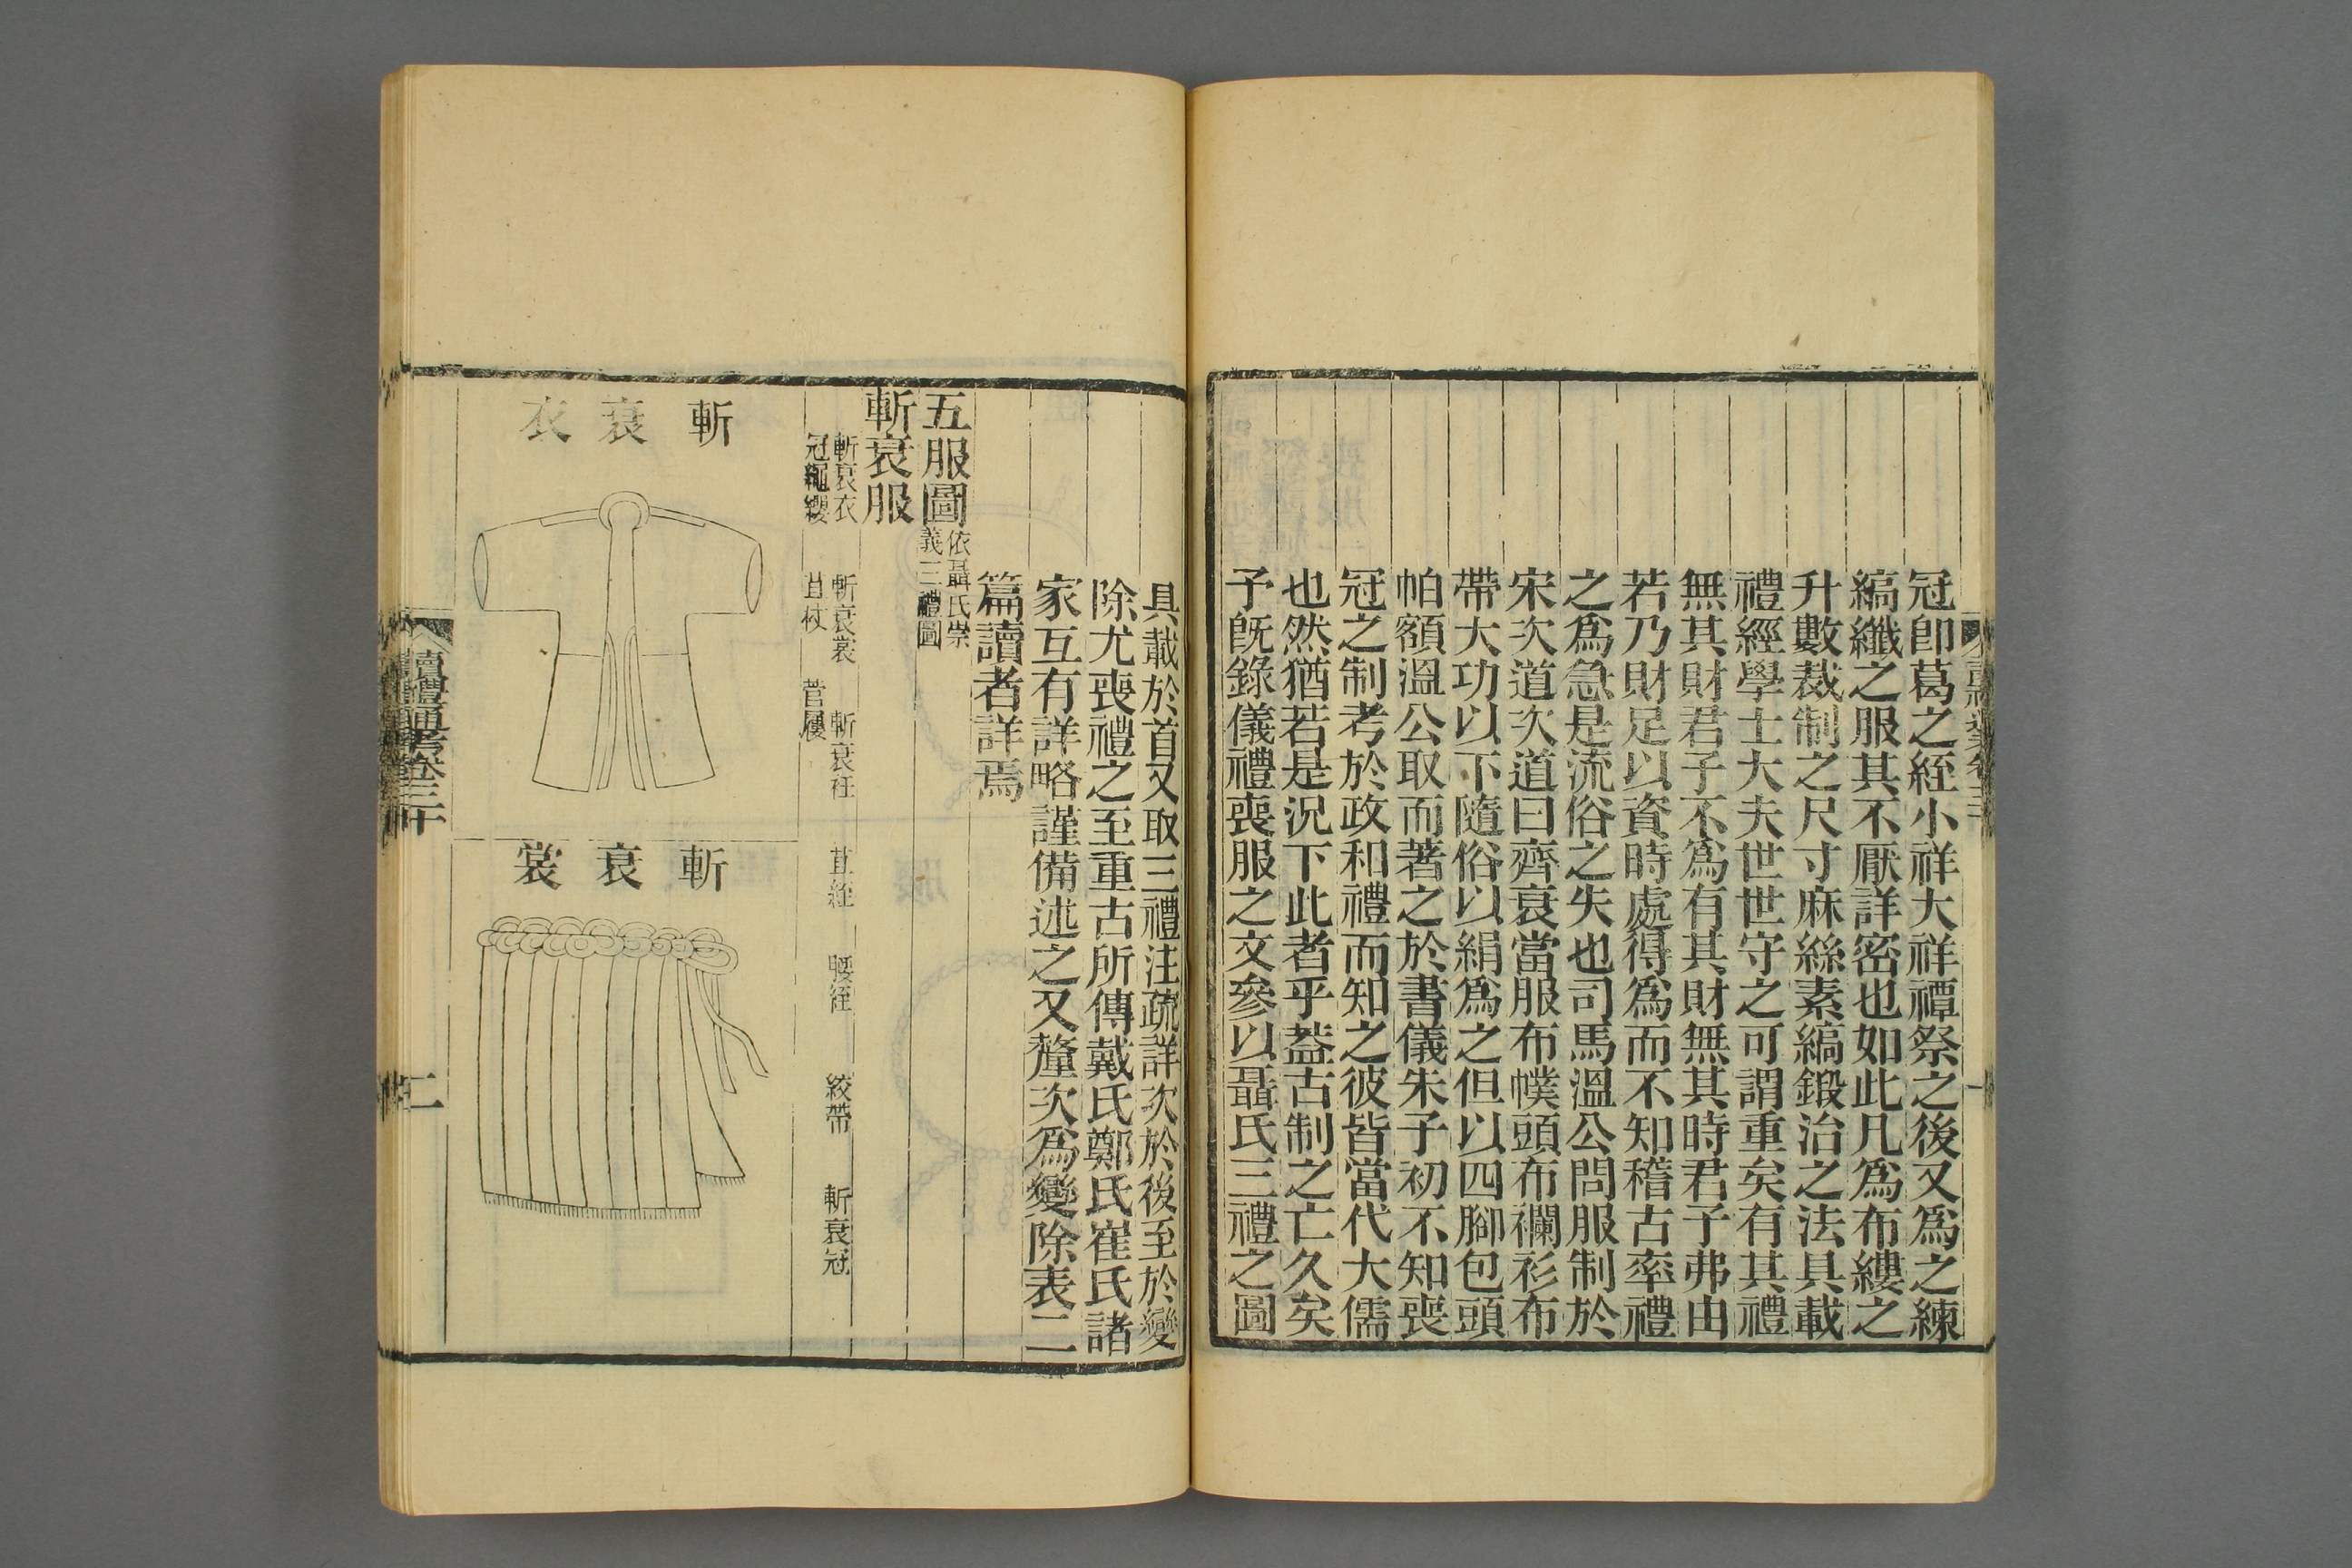 冠卽葛之絰小祥大祥禫祭之後又爲之練
縞纖之服其不厭詳密也如此凡爲布縷之
升數裁制之尺寸麻絲素縞鍛治之法具載
禮經學士大夫世世守之可謂重矣有其禮
無其財君子不爲有其財無其時君子弗由
若乃財足以資時處得爲而不知稽古率禮
之爲急是流俗之失也司馬溫公問服制於
宋次道次道曰齊衰當服布幞頭布襴衫布
帶大功以下隨俗以絹爲之但以四腳包頭
帕額溫公取而著之於書儀朱子初不知喪
冠之制考於政和禮而知之彼皆當代大儒
也然猶若是況下此者乎葢古制之亡久矣
予旣錄儀禮喪服之文參以聶氏三禮之圖
具載於首又取三禮注疏詳次於後至於變
除尤喪禮之至重古所傳戴氏鄭氏崔氏諸
家互有詳略謹備述之又釐次爲變除表二
篇讀者詳焉
五服圖依聶氏崇義三禮圖
斬衰服
斬衰衣 斬衰裳 斬衰衽 苴絰 腰絰 絞帶 斬衰冠
冠繩纓 苴杖 菅屨
斬衰衣
斬衰裳
讀禮通考卷三十
二